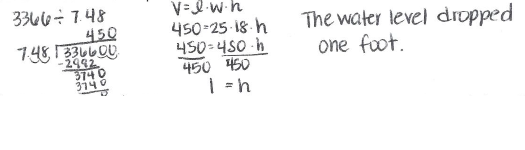 3366 ÷ 7.48
450
7.48 ⟌ 336600
-2992
3740
3740
0
V = l · w · h
450 = 25 · 18 · h
450 = 450 · h
450 450
1 = h
The water level dropped
one foot.